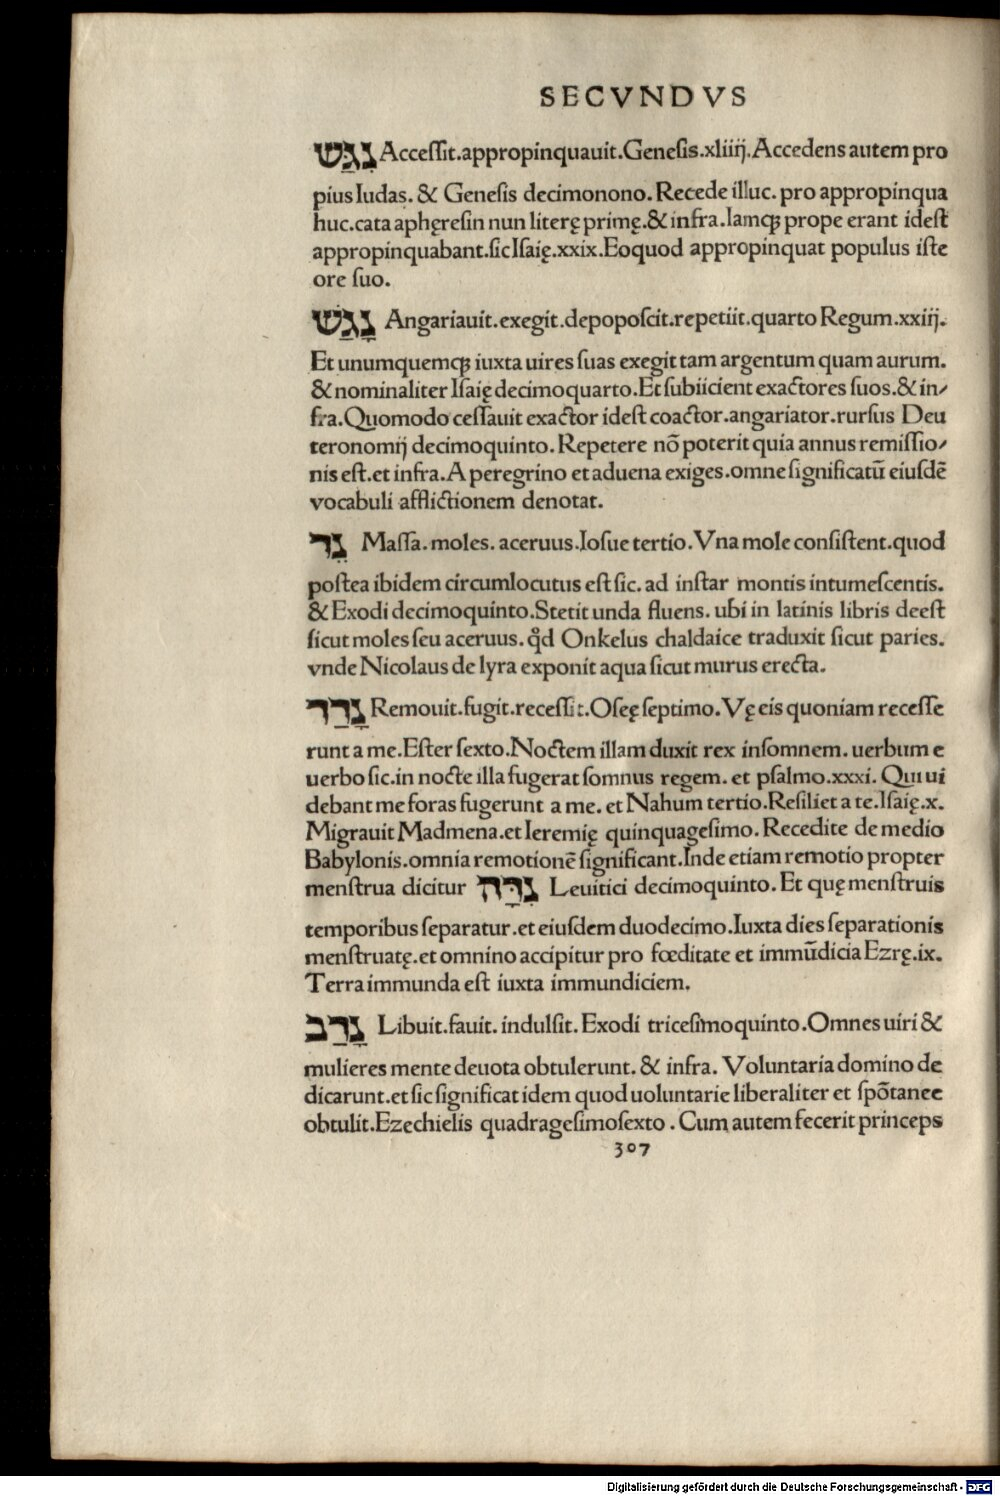 SECVNDVS
נָגַשׁ Acceſſit.appropinquauit.Geneſis.xliiij.Accedens autem pro
pius Iudas. & Geneſis decimonono. Recede illuc. pro appropinqua
huc.cata aphęreſin nun literę primę.& infra.Iamqꝫ prope erant ideſt
appropinquabant.ſic Iſaię.xxix.Eo quod appropinquat populus iſte
ore ſuo.
נָגַשׂ Angariauit.exegit.depopoſcit.repetiit.quarto Regum.xxiij.
Et unumquemqꝫ iuxta uires ſuas exegit tam argentum quam aurum.
& nominaliter Iſaię decimoquarto.Et ſubiicient exactores ſuos.& in⸗
fra.Quomodo ceſſauit exactor ideſt coactor.angariator.rurſus Deu
teronomij decimoquinto. Repetere nō poterit quia annus remiſſio⸗
nis eſt.et infra.A peregrino et aduena exiges.omne ſignificatū eiuſdē
vocabuli afflictionem denotat.
נֵד Maſſa. moles. aceruus.Ioſue tertio. Vna mole conſiſtent.quod
poſtea ibidem circumlocutus eſt ſic. ad inſtar montis intumeſcentis.
& Exodi decimoquinto.Stetit unda fluens. ubi in latinis libris deeſt
ſicut moles ſeu aceruus. qd̛ Onkelus chaldaice traduxit ſicut paries.
vnde Nicolaus de lyra exponit aqua ſicut murus erecta.
נָדַד Remouit.fugit.receſſit.Oſeę ſeptimo.Vę eis quoniam receſſe
runt a me.Eſter ſexto.Noctem illam duxit rex inſomnem. uerbum e
uerbo ſic.in nocte illa fugerat ſomnus regem. et pſalmo.xxxi. Qui ui
debant me foras fugerunt a me. et Nahum tertio.Reſiliet a te.Iſaię.x.
Migrauit Madmena.et Ieremię quinquageſimo. Recedite de medio
Babylonis.omnia remotionē ſignificant.Inde etiam remotio propter
menſtrua dicitur נִדָּה Leuitici decimoquinto. Et quę menſtruis
temporibus ſeparatur.et eiuſdem duodecimo.Iuxta dies ſeparationis
menſtruatę.et omnino accipitur pro fœditate et immūdicia Ezrę.ix.
Terra immunda eſt iuxta immundiciem.
נָדַב Libuit.fauit. indulſit. Exodi triceſimoquinto.Omnes uiri &
mulieres mente deuota obtulerunt. & infra. Voluntaria domino de
dicarunt.et ſic ſignificat idem quod uoluntarie liberaliter et ſpōtanee
obtulit.Ezechielis quadrageſimoſexto . Cum autem fecerit princeps
307
Digitalisierung gefördert durch die Deutsche Forschungsgemeinschaft - DFG